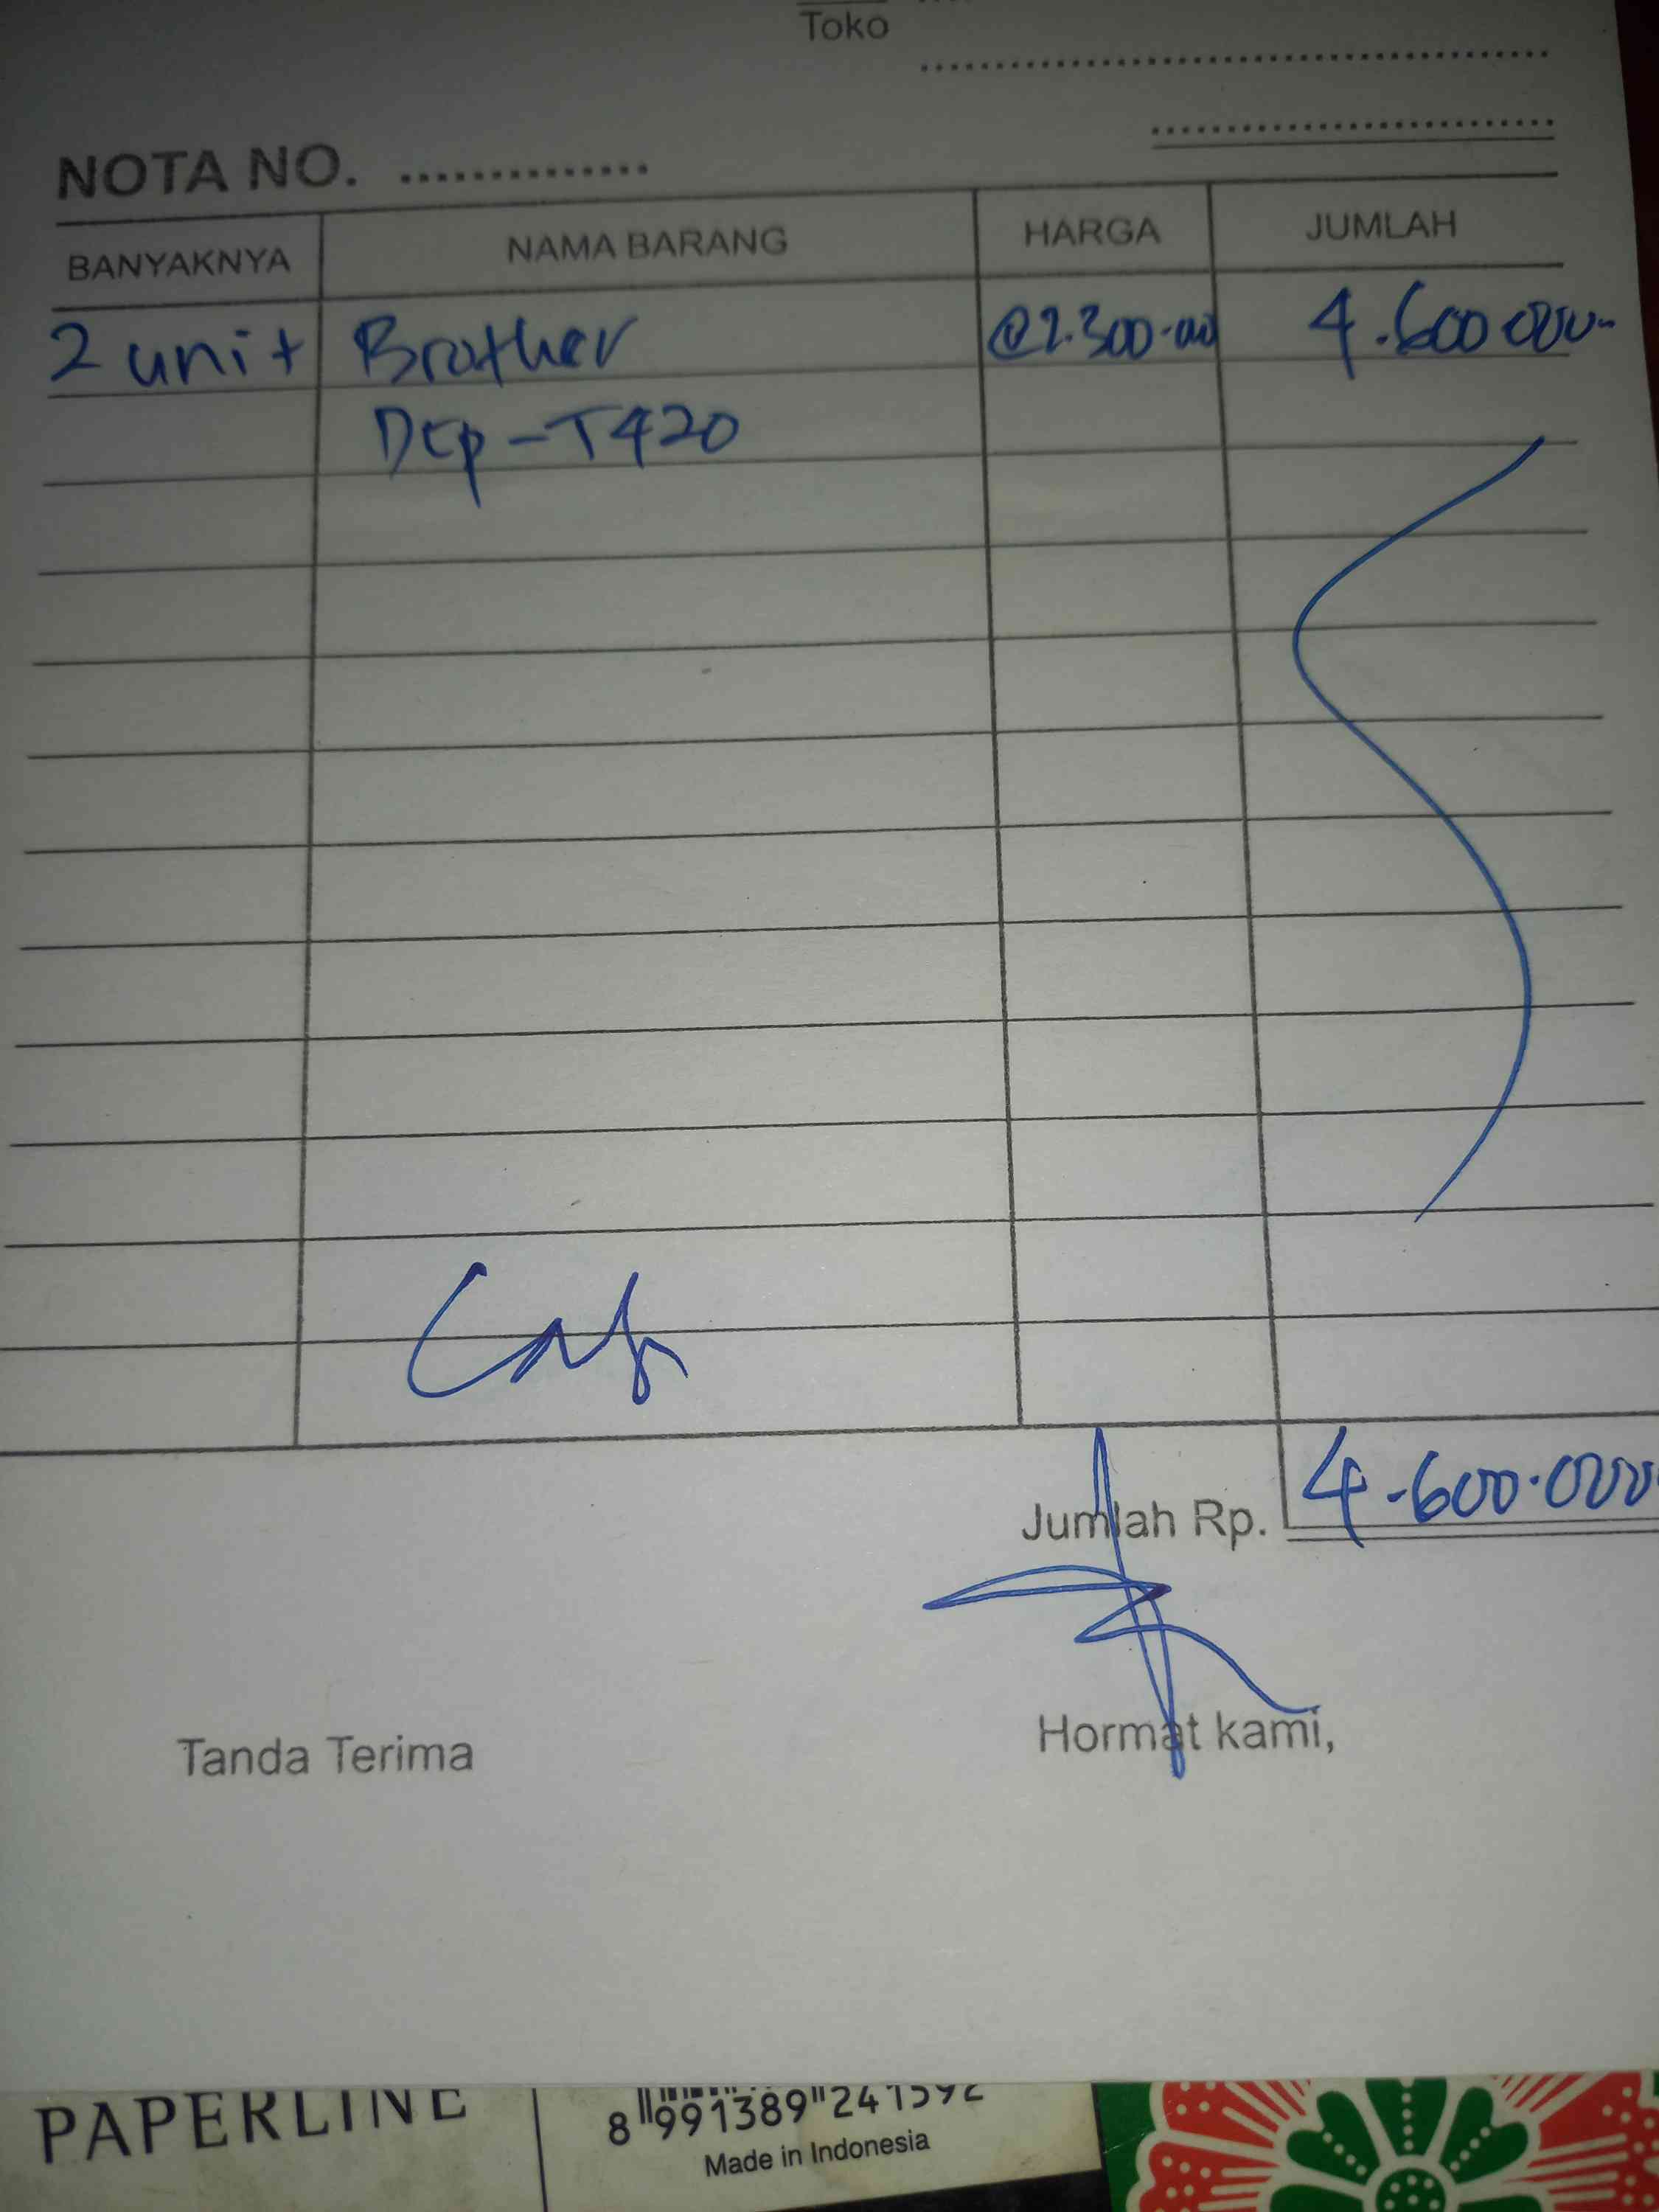 Toko
NOTA NO. ..............
BANYAKNYA NAMA BARANG HARGA JUMLAH
2 unit Brother @2.300.000 4.600.000,-
Dcp-T420
Cash
Jumlah Rp. 4.600.000
Tanda Terima Hormat kami,
PAPERLINE
8 991389 241592
Made in Indonesia